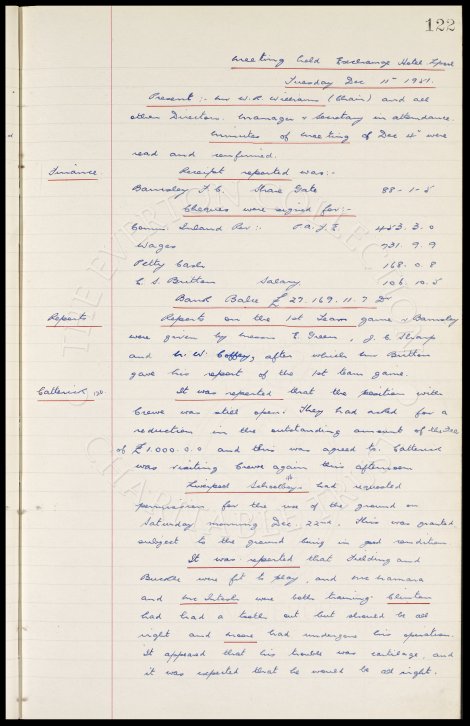 122
Meeting held Exchange Hotel L'pool
Tuesday Dec 11th 1951.
Present :- Mr W. R. Williams (Chair) and all
other Directors. Manager & Secretary in attendance.
Minutes of Meeting of Dec 4th were
read and confirmed.
Finance.
Receipt reported was :-
Barnsley F.C. Share Gate 88-1-5
Cheques were signed for :-
Comm. Inland Rev :- P.A.Y.E. 453. 3. 0
Wages 731. 9. 9
Petty Cash 168. 0. 8
C. S. Britton Salary 106. 10. 5
Bank Balce £27.169. 11. 7 Dr
Reports
Reports on the 1st Team game v Barnsley
were given by Messrs E. Green, J. C. Sharp
and Mr. W. Coffey, after which Mr Britton
gave his report of the 1st team game.
Catterick
It was reported that the position with
Crewe was still open. They had asked for a
reduction in the outstanding amount of the Fee
of £1.000. 0. 0 and this was agreed to. Catterick
was visiting Crewe again this afternoon
Liverpool Schoolboys had requested
permission for the use of the ground on
Saturday morning Dec. 22nd. This was granted
subject to the ground being in good condition.
It was reported that Fielding and
Buckle were fit to play, and McNamara
and McIntosh were both training. Clinton
had had a tooth out but should be all
right and Moore had undergone his operation.
It appeared that his trouble was cartilage, and
it was expected that he would be all right.
THE EVERTON COLLECTION
CHARITABLE TRUST